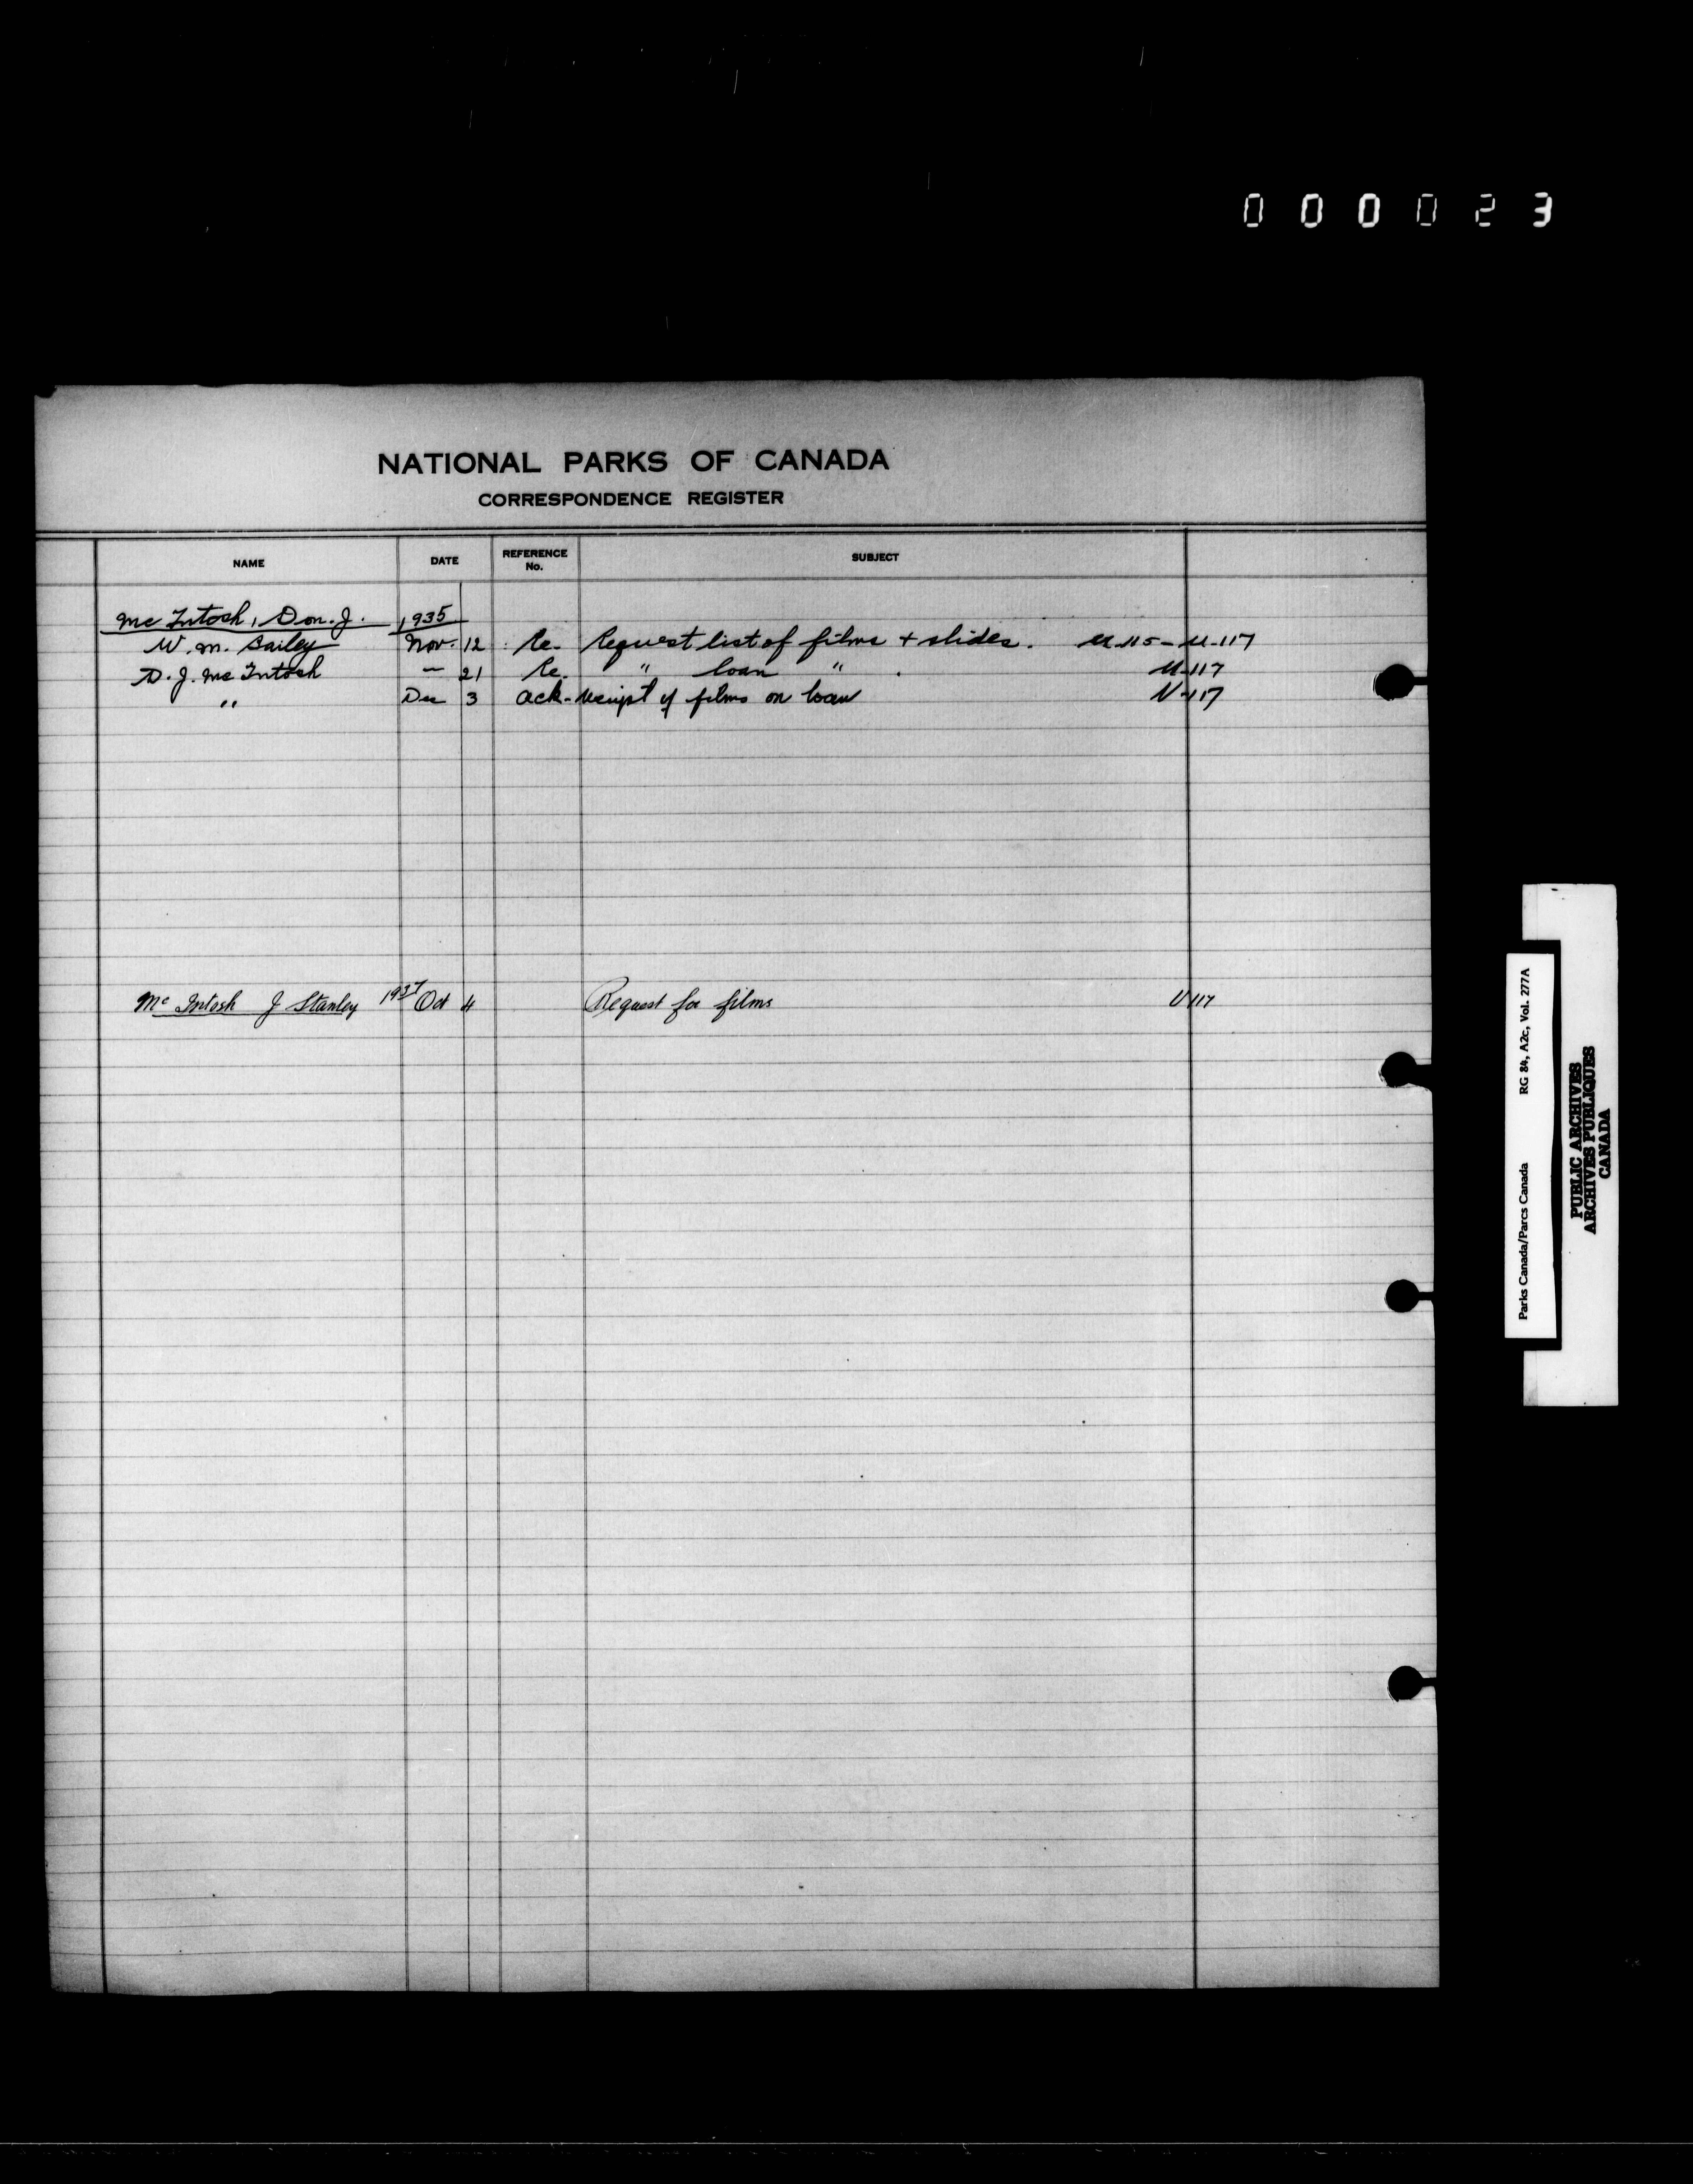 000023
NATIONAL PARKS OF CANADA
CORRESPONDENCE REGISTER
NAME DATE REFERENCE No. SUBJECT
McIntosh, Don. J. 1935
W. M. Bailey Nov. 12 Re- Request list of films + slides. U-115-U-117
D. J. McIntosh — 21 Re. " loan " . U-117
" Dec 3 ack-receipt of films on loan U-117
McIntosh J Stanley 1937 Oct 4 Request for films U 117
Parks Canada/Parcs Canada RG 84, A2c, Vol. 277A
PUBLIC ARCHIVES
ARCHIVES PUBLIQUES
CANADA